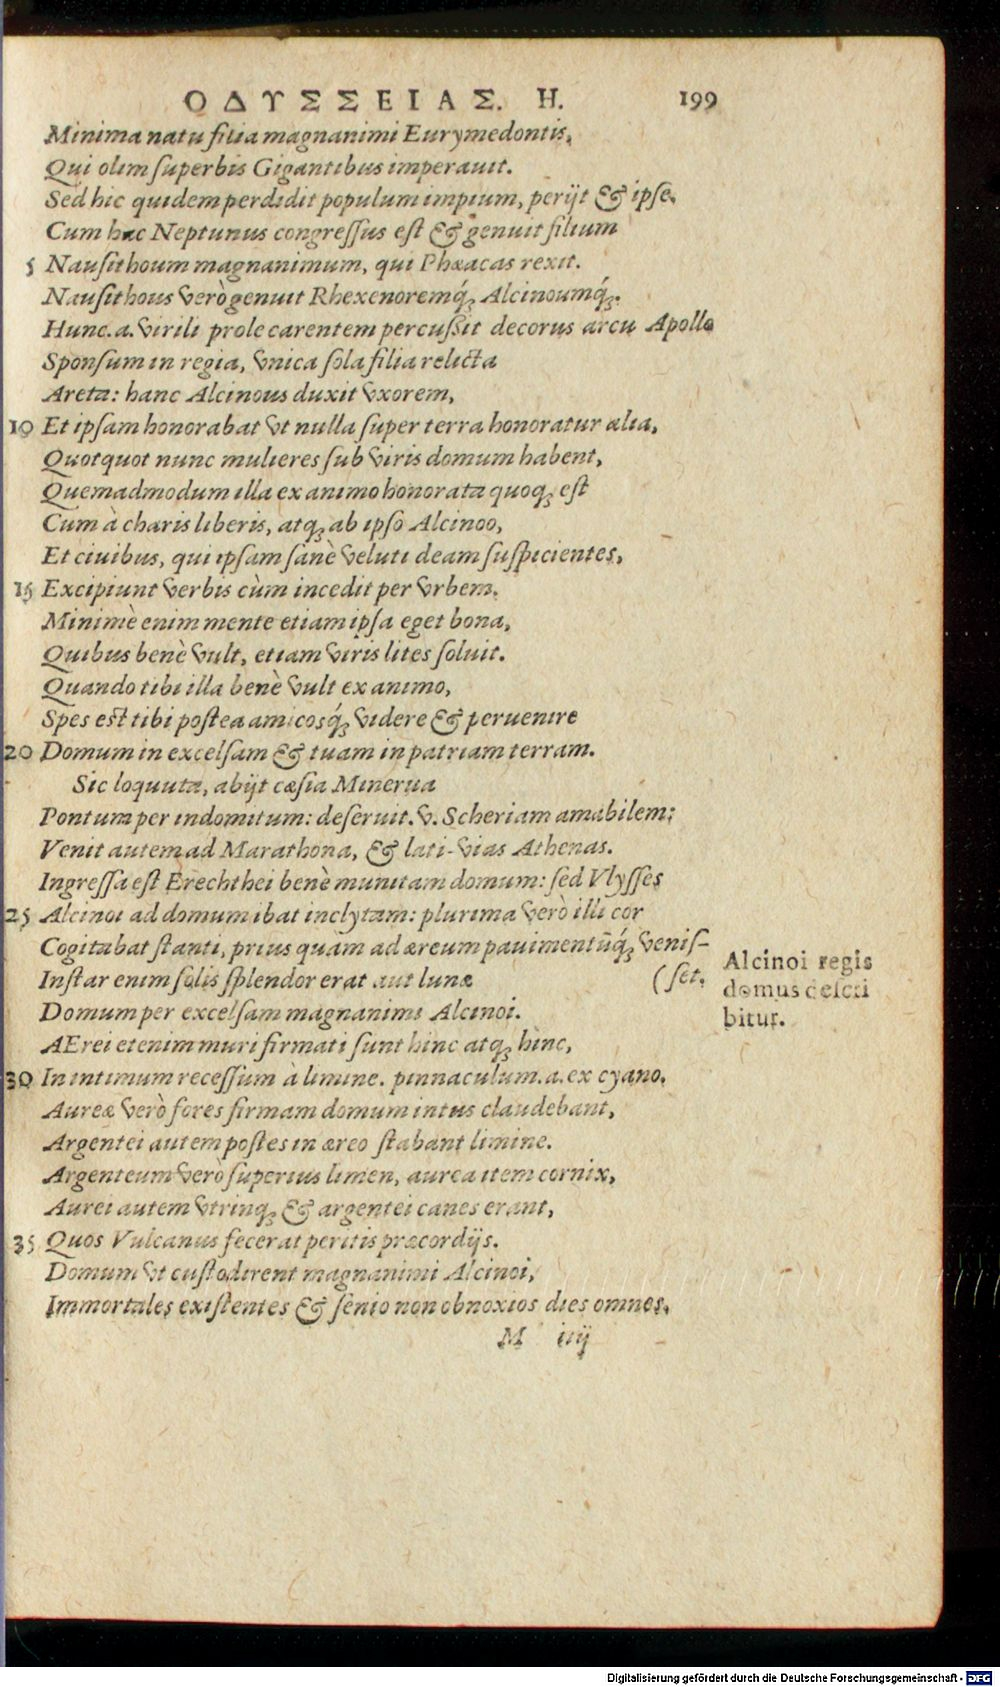 ΟΔΥΣΣΕΙΑΣ. Η. 199
Minima natu filia magnanimi Eurymedontis,
Qui olim ſuperbis Gigantibus imperauit.
Sed hic quidem perdidit populum impium, perijt & ipſe.
Cum hac Neptunus congreſſus eſt & genuit filium
5 Nauſithoum magnanimum, qui Phæacas rexit.
Nauſithous verò genuit Rhexenoremq́ꝫ Alcinoumq́ꝫ.
Hunc .a. virili prole carentem percuſsit decorus arcu Apollo
Sponſum in regia, vnica ſola filia relicta
Areta: hanc Alcinous duxit vxorem,
10 Et ipſam honorabat vt nulla ſuper terra honoratur alia,
Quotquot nunc mulieres ſub viris domum habent,
Quemadmodum illa ex animo honorata quoqꝫ eſt
Cum à charis liberis, atqꝫ ab ipſo Alcinoo,
Et ciuibus, qui ipſam ſanè veluti deam ſuſpicientes,
15 Excipiunt verbis cùm incedit per vrbem.
Minimè enim mente etiam ipſa eget bona,
Quibus benè vult, etiam viris lites ſoluit.
Quando tibi illa benè vult ex animo,
Spes eſt tibi poſtea amicosq́ꝫ videre & peruenire
20 Domum in excelſam & tuam in patriam terram.
Sic loquuta, abijt cæſia Minerua
Pontum per indomitum: deſeruit .v. Scheriam amabilem:
Venit autem ad Marathona, & lati-vias Athenas.
Ingreſſa eſt Erechthei benè munitam domum: ſed Vlyſſes
25 Alcinoi ad domum ibat inclytam: plurima verò illi cor
Cogitabat ſtanti, prius quam ad æreum pauimentũq́ꝫ veniſ-
Inſtar enim ſolis ſplendor erat aut lunæ (ſet.
Domum per excelſam magnanimi Alcinoi.
AErei etenim muri firmati ſunt hinc atqꝫ hinc,
30 In intimum receſſum à limine. pinnaculum .a. ex cyano.
Aureæ verò fores firmam domum intus claudebant,
Argentei autem poſtes in æreo ſtabant limine.
Argenteum verò ſuperius limen, aurea item cornix,
Aurei autem vtrinqꝫ & argentei canes erant,
35 Quos Vulcanus fecerat peritis præcordijs.
Domum vt cuſtodirent magnanimi Alcinoi,
Immortales exiſtentes & ſenio non obnoxios dies omnes.
M iiij
Alcinoi regis
domus deſcri
bitur.
Digitalisierung gefördert durch die Deutsche Forschungsgemeinschaft - DFG